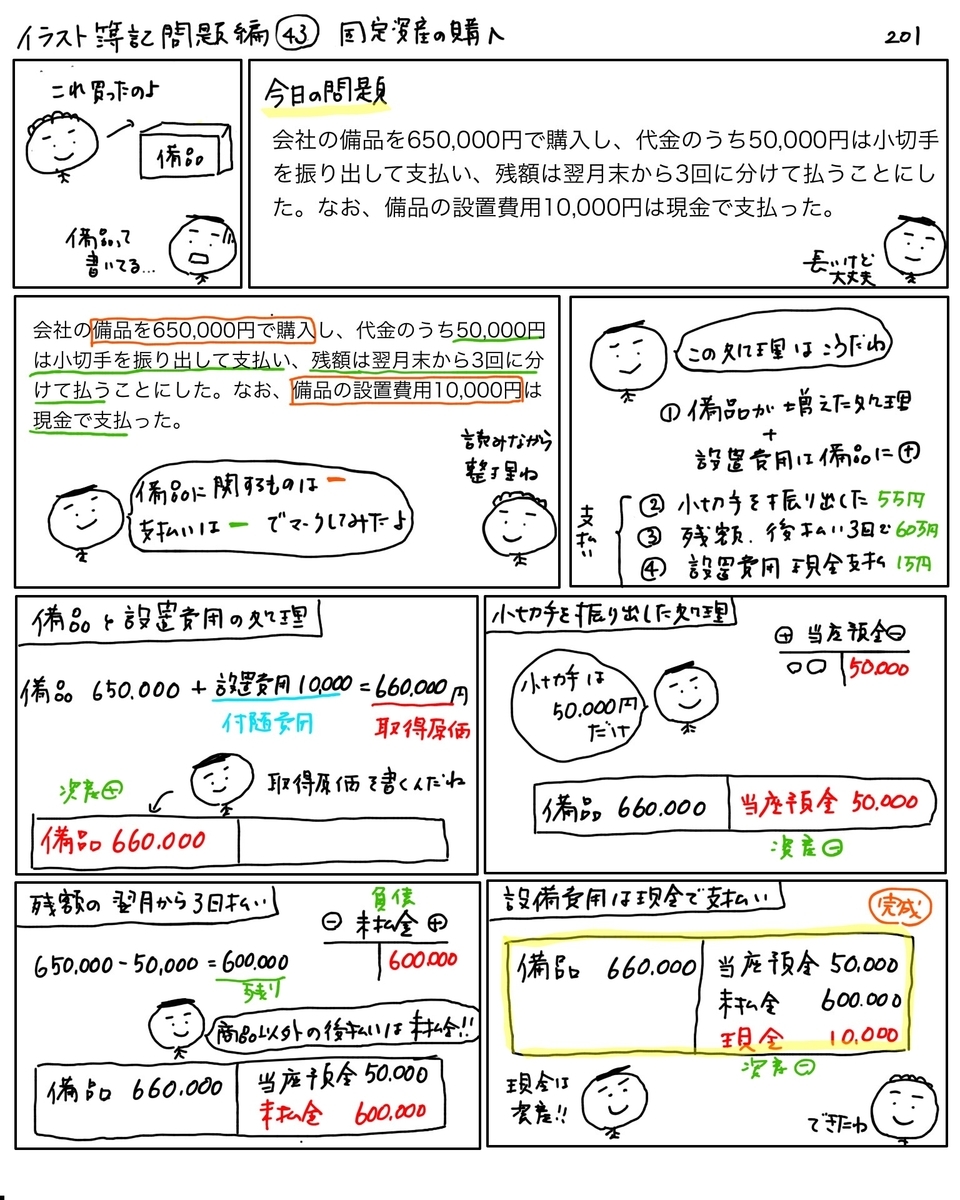 イラスト簿記問題編㊸ 固定資産の購入
201
これ買ったのよ
備品
備品って
書いてる…
今日の問題
会社の備品を650,000円で購入し、代金のうち50,000円は小切手
を振り出して支払い、残額は翌月末から3回に分けて払うことにし
た。なお、備品の設置費用10,000円は現金で支払った。
長いけど
大丈夫
会社の備品を650,000円で購入し、代金のうち50,000円
は小切手を振り出して支払い、残額は翌月末から3回に分
けて払うことにした。なお、備品の設置費用10,000円は
現金で支払った。
読みながら
整理ね
備品に関するものは ー
支払いは ー でマークしてみたよ
この処理はこうだね
① 備品が増えた処理
+
設置費用は備品に⊕
支払い
② 小切手を振り出した 5万円
③ 残額、後払い3回で 60万円
④ 設置費用 現金支払 1万円
備品と設置費用の処理
備品 650.000 + 設置費用 10,000 = 660,000円
付随費用
取得原価
資産⊕
取得原価を書くんだね
備品 660.000
小切手を振り出した処理
⊕ 当座預金 ⊖
50.000
小切手は
50.000円
だけ
備品 660.000
当座預金 50.000
資産⊖
残額の翌月から3回払い
負債
⊖ 未払金 ⊕
600.000
650,000-50,000 = 600.000
残り
商品以外の後払いは未払金!!
備品 660.000
当座預金 50.000
未払金 600.000
設備費用は現金で支払い
完成
備品 660.000
当座預金 50,000
未払金 600.000
現金 10,000
資産⊖
現金は
資産!!
できたわ